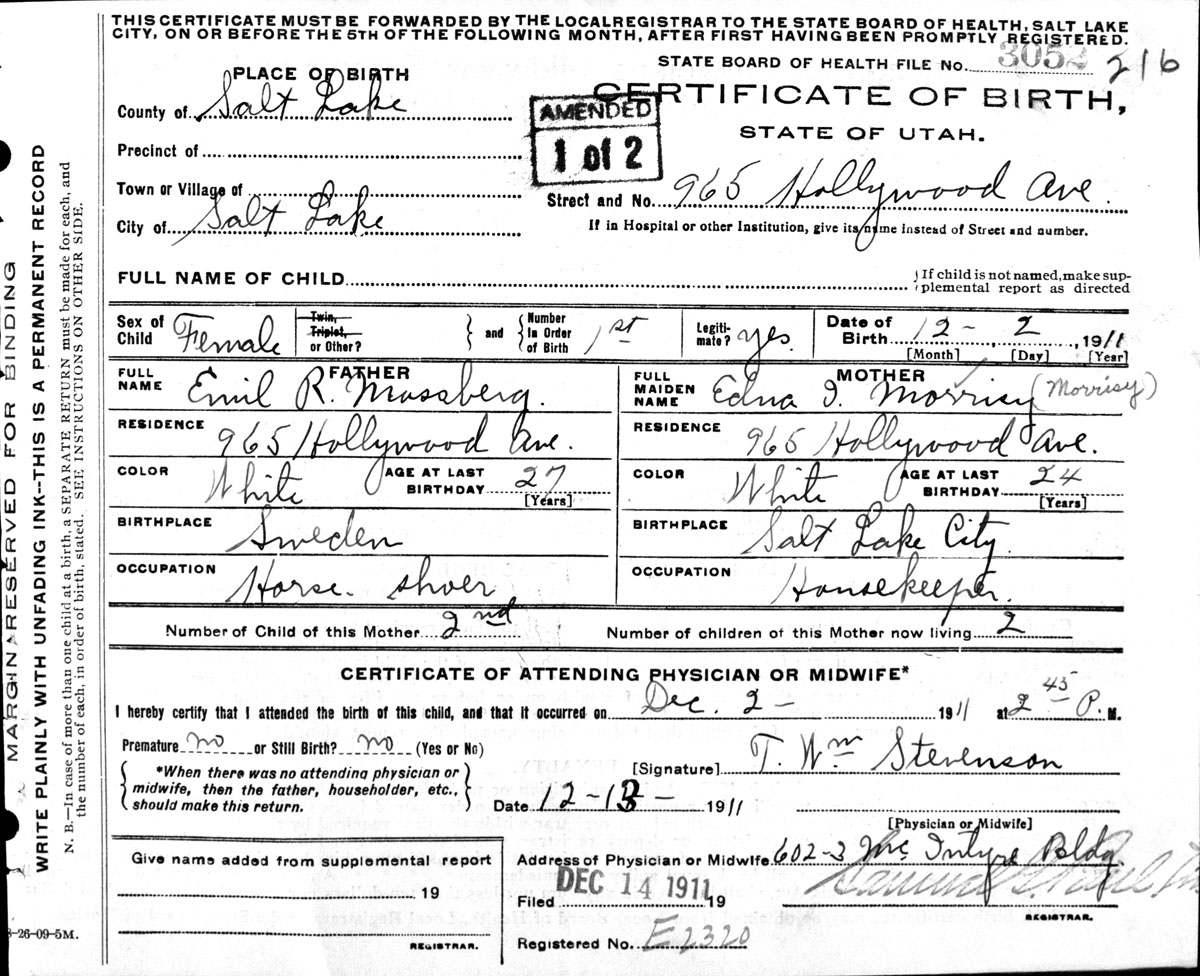 THIS CERTIFICATE MUST BE FORWARDED BY THE LOCAL REGISTRAR TO THE STATE BOARD OF HEALTH, SALT LAKE
CITY, ON OR BEFORE THE 5TH OF THE FOLLOWING MONTH, AFTER FIRST HAVING BEEN PROMPTLY REGISTERED.
STATE BOARD OF HEALTH FILE NO. 3052 216
PLACE OF BIRTH
CERTIFICATE OF BIRTH,
County of Salt Lake
AMENDED
1 of 2
STATE OF UTAH.
Precinct of
Town or Village of
Street and No. 965 Hollywood Ave.
City of Salt Lake
If in Hospital or other Institution, give its name instead of Street and number.
FULL NAME OF CHILD
If child is not named, make sup-
plemental report as directed
Sex of Child Female
Twin, Triplet, or Other?
and
Number In Order of Birth 1st
Legiti-mate? yes.
Date of Birth 12 - 2, 1911
[Month] [Day] [Year]
FATHER
FULL NAME Emil R. Mossberg.
MOTHER
FULL MAIDEN NAME Edna I. Morrisy (Morrisy)
RESIDENCE 965 Hollywood Ave.
RESIDENCE 965 Hollywood Ave.
COLOR White AGE AT LAST BIRTHDAY 27 [Years]
COLOR White AGE AT LAST BIRTHDAY 24 [Years]
BIRTHPLACE Sweden
BIRTHPLACE Salt Lake City.
OCCUPATION Horse-shoer
OCCUPATION Housekeeper.
Number of Child of this Mother 2nd
Number of children of this Mother now living 2
CERTIFICATE OF ATTENDING PHYSICIAN OR MIDWIFE*
I hereby certify that I attended the birth of this child, and that it occurred on Dec. 2 - 1911 at 2 45 P. M.
Premature no or Still Birth? no (Yes or No)
*When there was no attending physician or
midwife, then the father, householder, etc.,
should make this return.
[Signature] T. Wm Stevenson
Date 12-13- 1911
[Physician or Midwife]
Give name added from supplemental report
19
REGISTRAR.
Address of Physician or Midwife 602-3 McIntyre Bldg.
Filed DEC 14 1911 19
REGISTRAR.
Registered No. E2320
8-26-09-5M.
MARGIN RESERVED FOR BINDING
WRITE PLAINLY WITH UNFADING INK--THIS IS A PERMANENT RECORD
N. B.—In case of more than one child at a birth, a SEPARATE RETURN must be made for each, and
the number of each, in order of birth, stated. SEE INSTRUCTIONS ON OTHER SIDE.